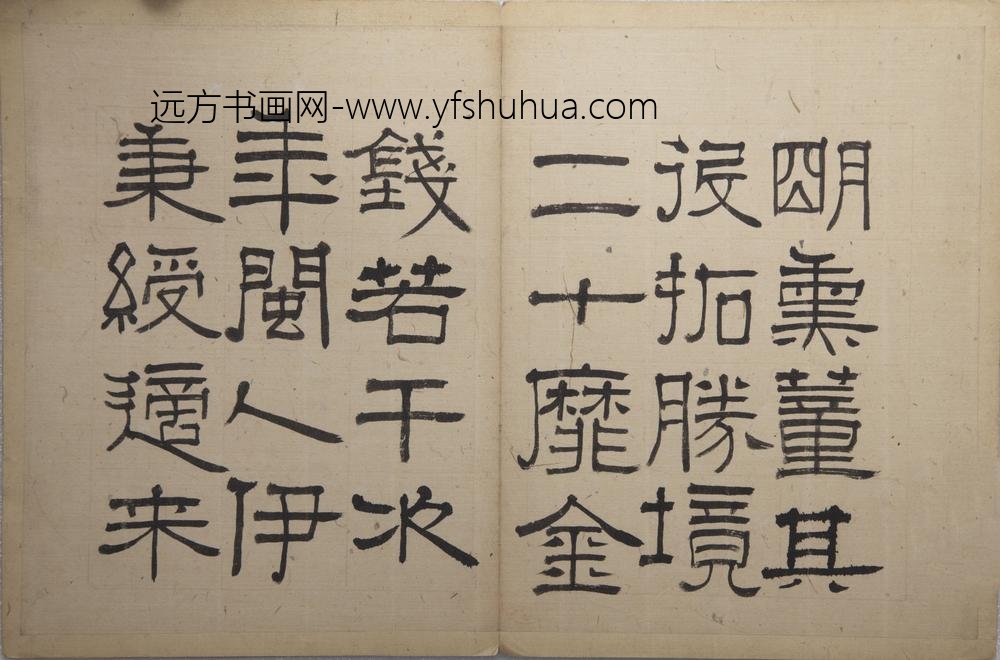 远方书画网-www.yfshuhua.com
朙熏董其
役拓勝境
二十靡金
錢若干
年閩人伊
秉綬適来